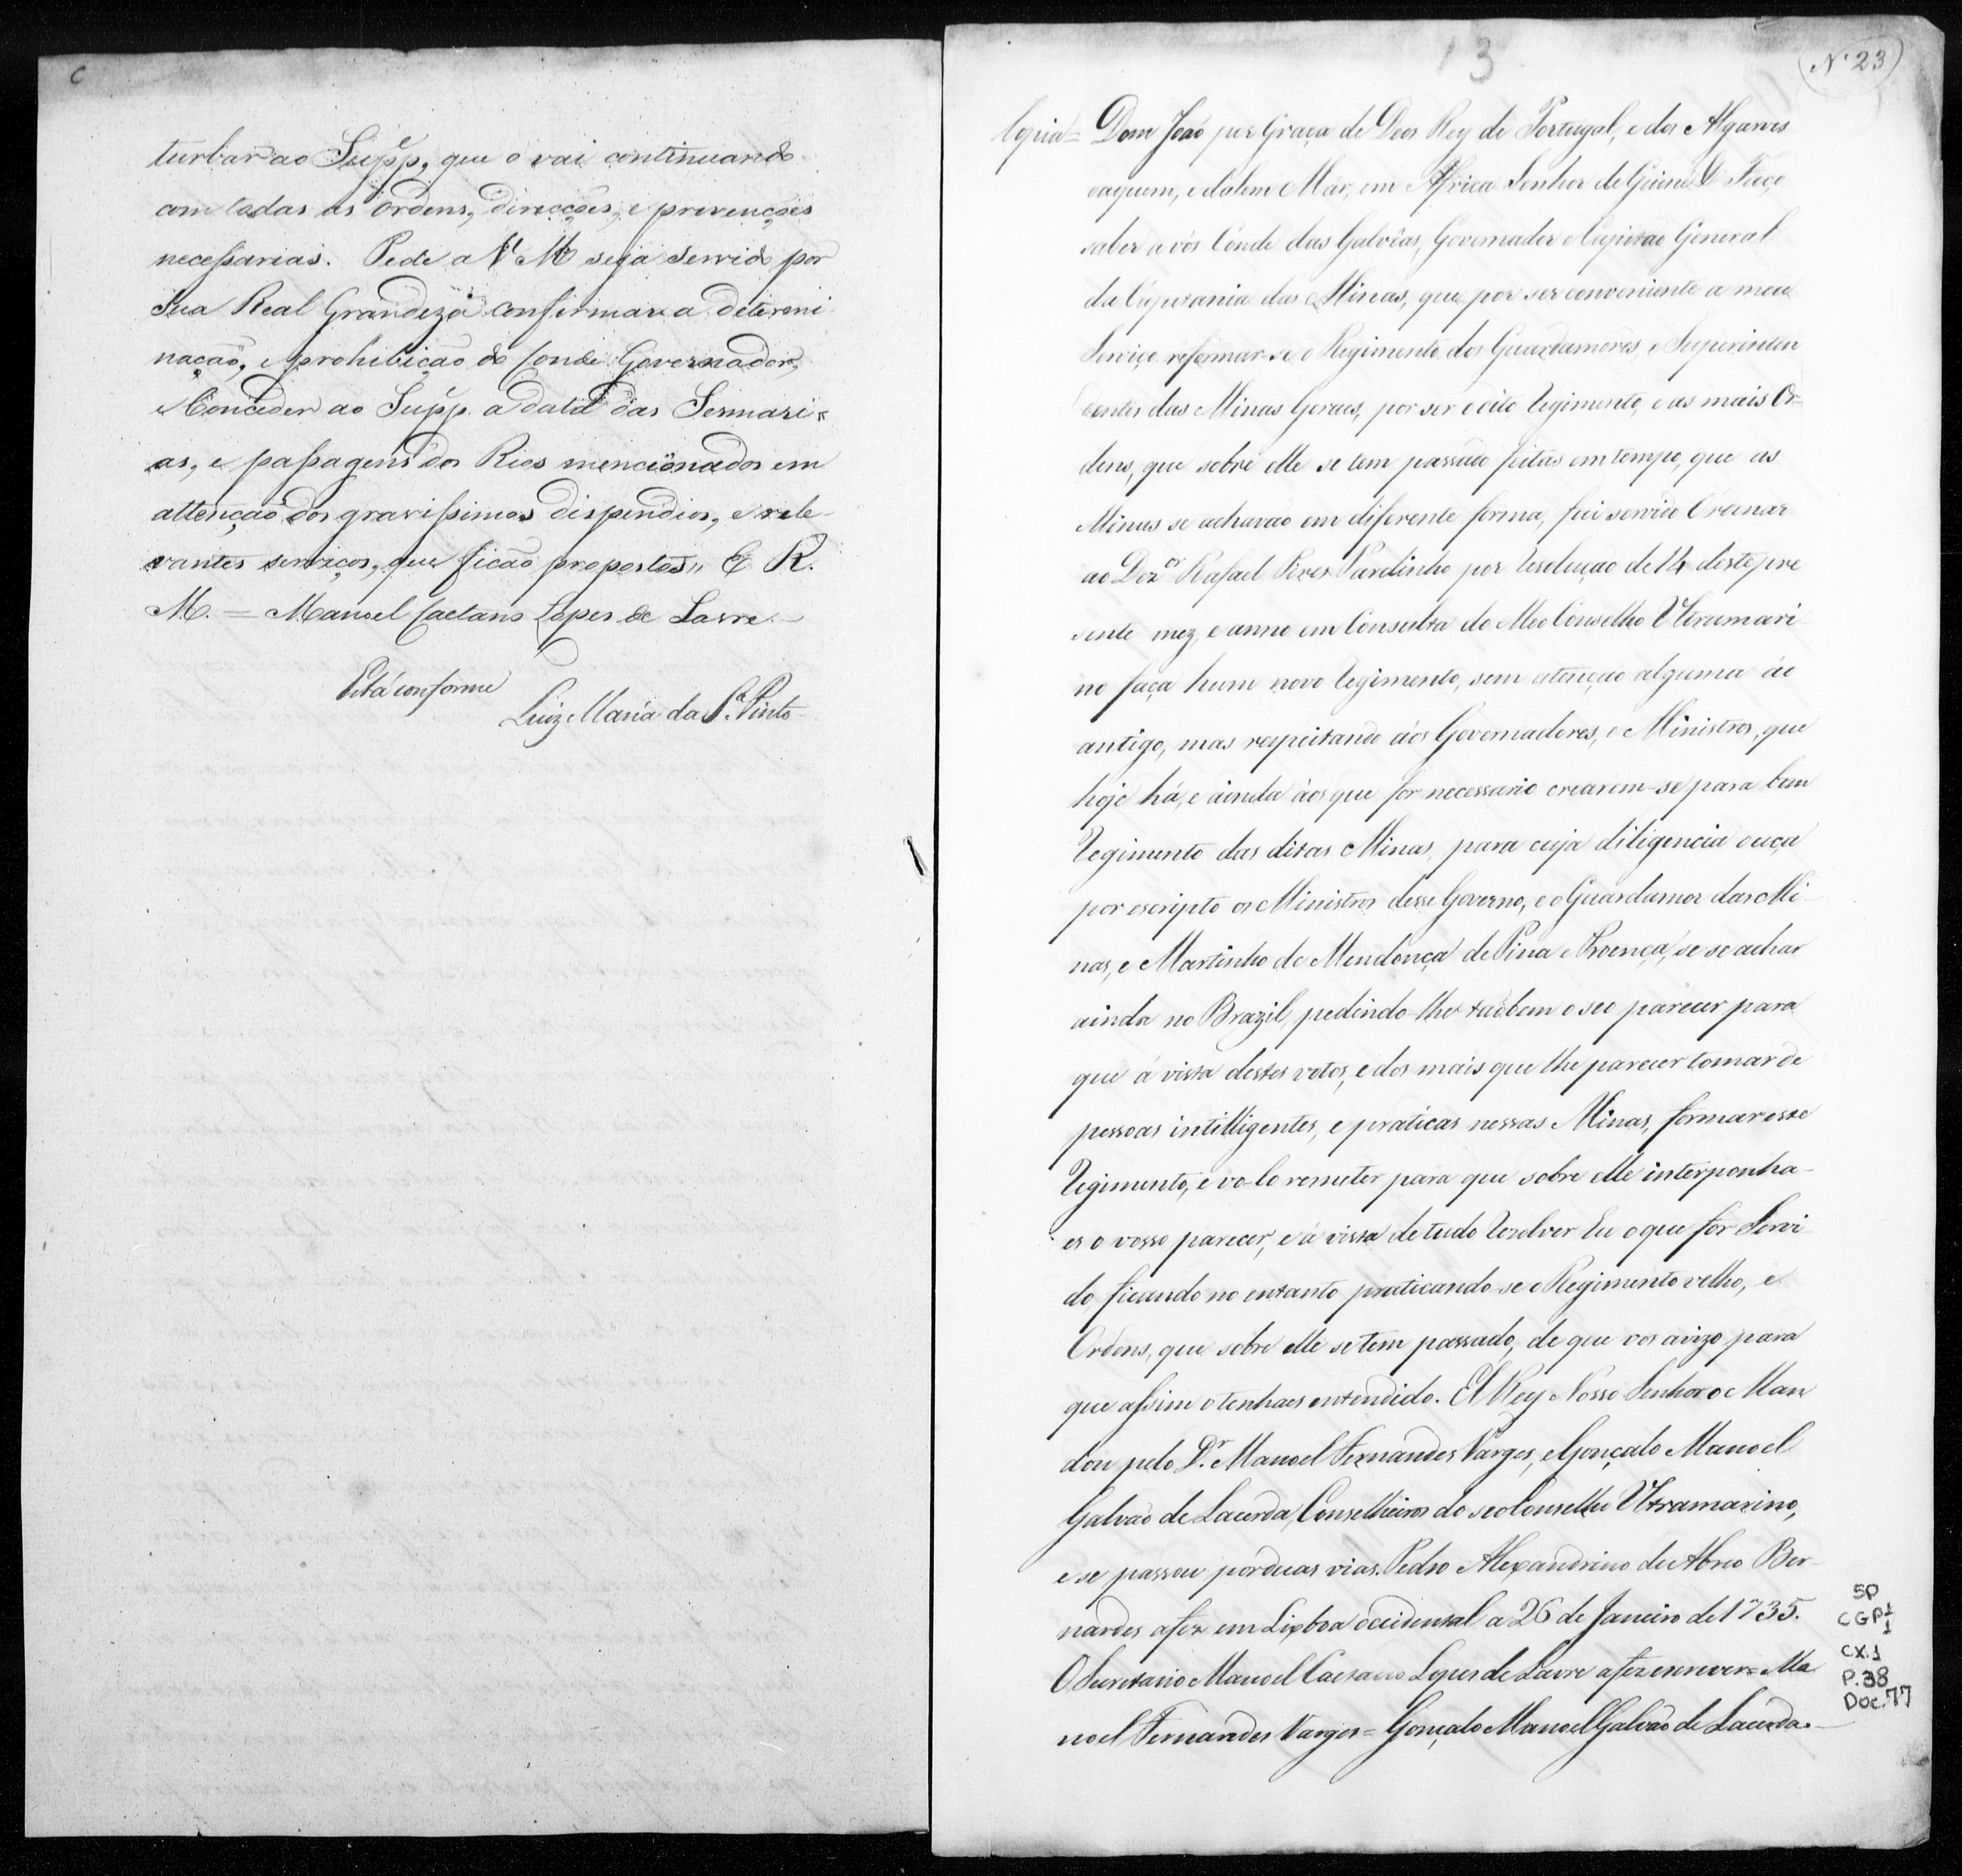 C
turbar ao Supp.e, que o vai continuando
com todas as ordens, direcções, e prevenções
necessarias. Pede a V. M. seja servido por
Sua Real Grandeza confirmar a determi
nação, e prohibição do Conde Governador,
e Conceder ao Supp.e a data das Sesmari=
as, e passagens dos Rios mencionados em
attenção dos gravissimos dispendios, e rele-
vantes serviços, que ficão propostos,, E R.
M. = Manoel Caetano Lopes de Lavre.
Está conforme
Luiz Maria da S.a Pinto
13
N. 23
Copia = Dom João por Graça de Deos Rey de Portugal, e dos Algarves
daquem, e dalem Mar, em Africa Senhor de Guiné &. Faço
saber a vós Conde das Galvêas, Governador e Capitão General
da Capitania das Minas, que por ser conveniente a meu
Serviço reformar-se o Regimento dos Guardamores, e Superinten
dentes das Minas Geraes, por ser o dito Regimento, e as mais Or=
dens, que sobre elle se tem passado feitas em tempo, que as
Minas se achavão em diferente forma, fui servido Ordenar
ao Dez.or Rafael Pires Pardinho por Resolução de 14 deste pre
sente mez, e anno em Consulta do Meo Conselho Ultramari
no faça hum novo Regimento, sem atenção alguma ao
antigo, mas respeitando áos Governadores, e Ministros, que
hoje há, e ainda áos que for necessario crearem-se para bom
Regimento das ditas Minas, para cuja diligencia ouça
por escripto os Ministros desse Governo, e o Guardamor das Mi-
nas, e Martinho de Mendonça de Pina e Proença, se se achar
ainda no Brazil, pedindo-lhe tambem o seo parecer para
que á vista destes votos, e dos mais que lhe parecer tomar de
pessoas intilligentes, e práticas nessas Minas, formar esse
Regimento, e vo-lo remeter para que sobre elle interponha-
es o vosso parecer, e á vista de tudo Rezolver Eu o que for Servi-
do, ficando no entanto praticando-se o Regimento velho, e
Ordens, que sobre elle se tem passado, de que vos avizo para
que assim o tenhaes entendido. El Rey Nosso Senhor o Man
dou pelo D.r Manoel Fernandes Varges, e Gonçalo Manoel
Galvão de Lacerda, Conselheiros do seo Conselho Ultramarino,
e se passou por duas vias. Pedro Alexandrino de Abreo Ber-
nardes a fez em Lixboa occidental a 26 de Janeiro de 1735.
O Secretario Manoel Caetano Lopes de Lavre a fez escrever = Ma
noel Fernandes Varges = Gonçalo Manoel Galvão de Lacerda.
SP
CGP 1/1
CX.1
P.38
Doc.77